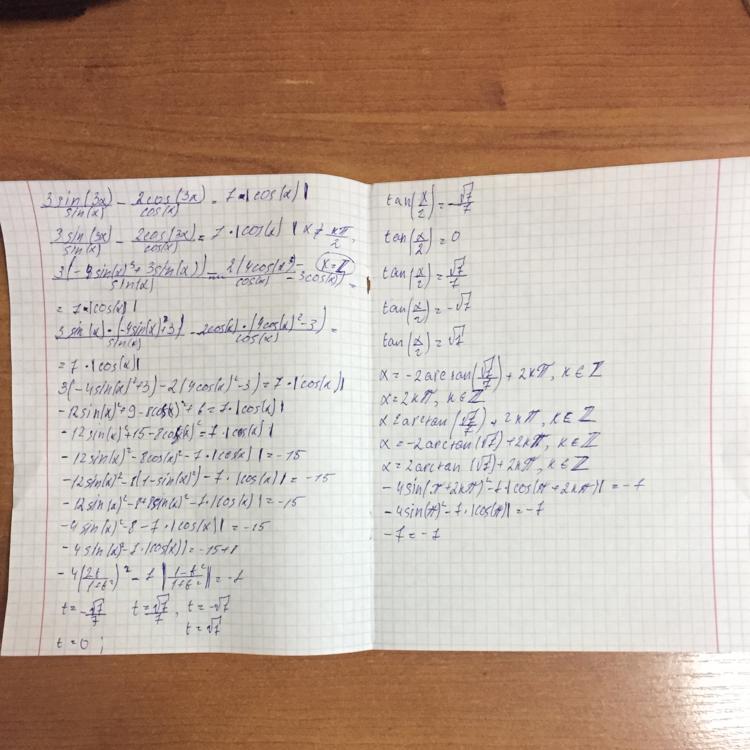 3sin(3x)/sin(x) - 2cos(3x)/cos(x) = 7·|cos(x)|
3sin(3x)/sin(x) - 2cos(3x)/cos(x) = 7·|cos(x)| | x ≠ kπ/2,
3(-4sin(x)³+3sin(x))/sin(x) - 2(4cos(x)³ - 3cos(x))/cos(x) =
k∈Z
= 7·|cos(x)|
3sin(x)·(-4sin(x)²+3)/sin(x) - 2cos(x)·(4cos(x)²-3)/cos(x) =
= 7·|cos(x)|
3(-4sin(x)²+3)-2(4cos(x)²-3)=7·|cos(x)|
-12sin(x)²+9-8cos(x)²+6=7·|cos(x)|
-12sin(x)²+15-8cos(x)²=7·|cos(x)|
-12sin(x)²-8cos(x)²-7·|cos(x)|=-15
-12sin(x)²-8(1-sin(x)²)-7·|cos(x)|=-15
-12sin(x)²-8+8sin(x)²-7·|cos(x)|=-15
-4sin(x)²-8-7·|cos(x)|=-15
-4sin(x)²-7·|cos(x)|=-15+8
-4(2t/(1+t²))²-7|(1-t²)/(1+t²)|=-7
t=-√7/7 t=√7/7, t=-√7
t=√7
t=0;
tan(x/2)=-√7/7
tan(x/2)=0
tan(x/2)=√7/7
tan(x/2)=-√7
tan(x/2)=√7
x=-2arctan(√7/7)+2kπ, k∈Z
x=2kπ, k∈Z
x=2arctan(√7/7)+2kπ, k∈Z
x=-2arctan(√7)+2kπ, k∈Z
x=2arctan(√7)+2kπ, k∈Z
-4sin(π+2kπ)²-7·|cos(π+2kπ)|=-7
-4sin(π)²-7·|cos(π)|=-7
-7=-7